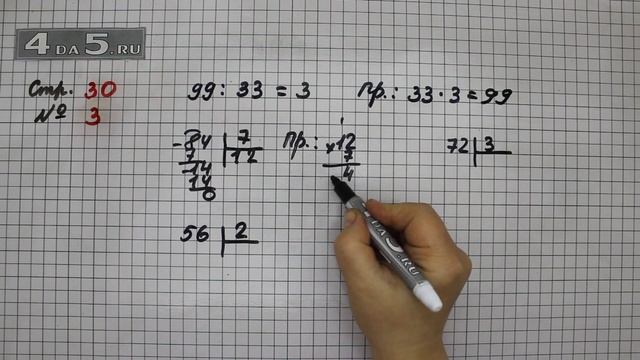 4 DA 5.RU
Стр. 30
№ 3
99 : 33 = 3
Пр.: 33 · 3 = 99
- 84 | 7
7 | 12
- 14
14
0
Пр.: 1
× 12
7
4
72 | 3
56 | 2
4 DA 5.RU